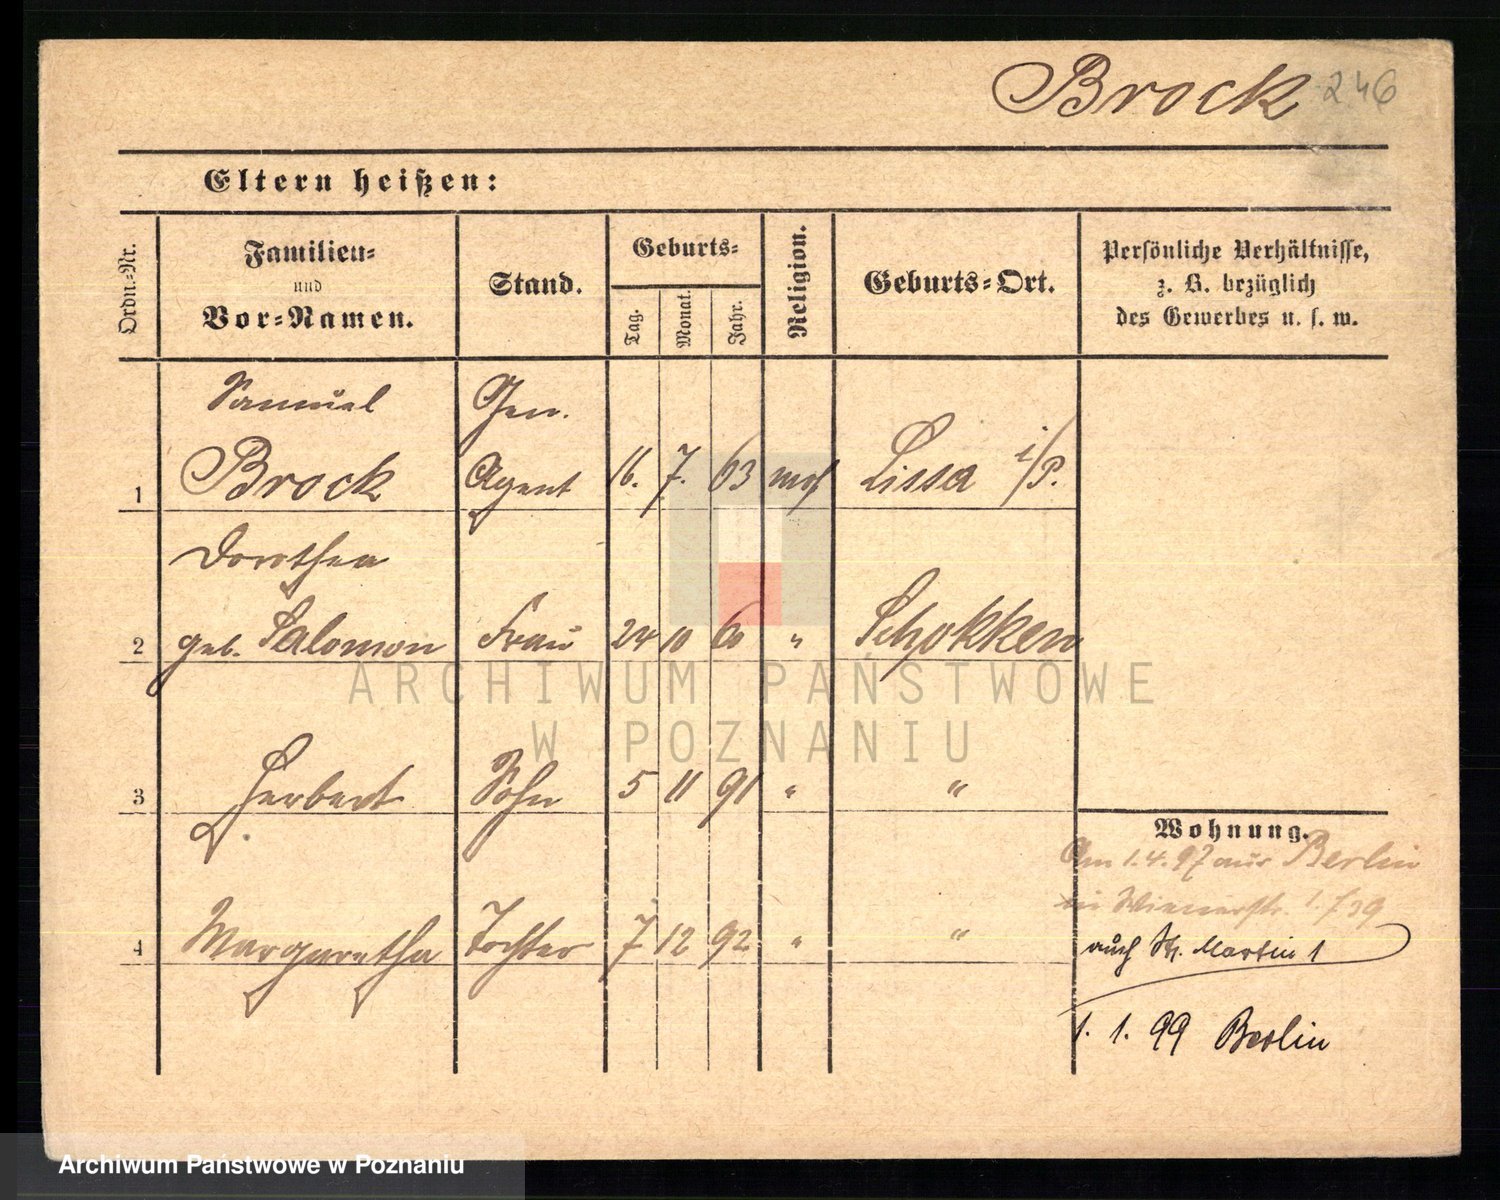 Brock 246
Eltern heißen:
Ordn.-Nr.
Familien-
und
Vor-Namen.
Stand.
Geburts-
Tag.
Monat.
Jahr.
Religion.
Geburts-Ort.
Persönliche Verhältnisse,
z. B. bezüglich
des Gewerbes u. s. w.
Samuel Gen.
1 Brock Agent 16. 7. 63 mos Lissa i/P.
Dorothea
2 geb. Salomon Frau 24 10 60 " Schokken
3 Herbert Sohn 5 11 91 " "
4 Margaretha Tochter 7 12 92 " "
Wohnung.
Am 1.4.97 aus Berlin
Wienerstr.
auch St. Martin 1
1. 1. 99 Berlin
ARCHIWUM PAŃSTWOWE
W POZNANIU
Archiwum Państwowe w Poznaniu